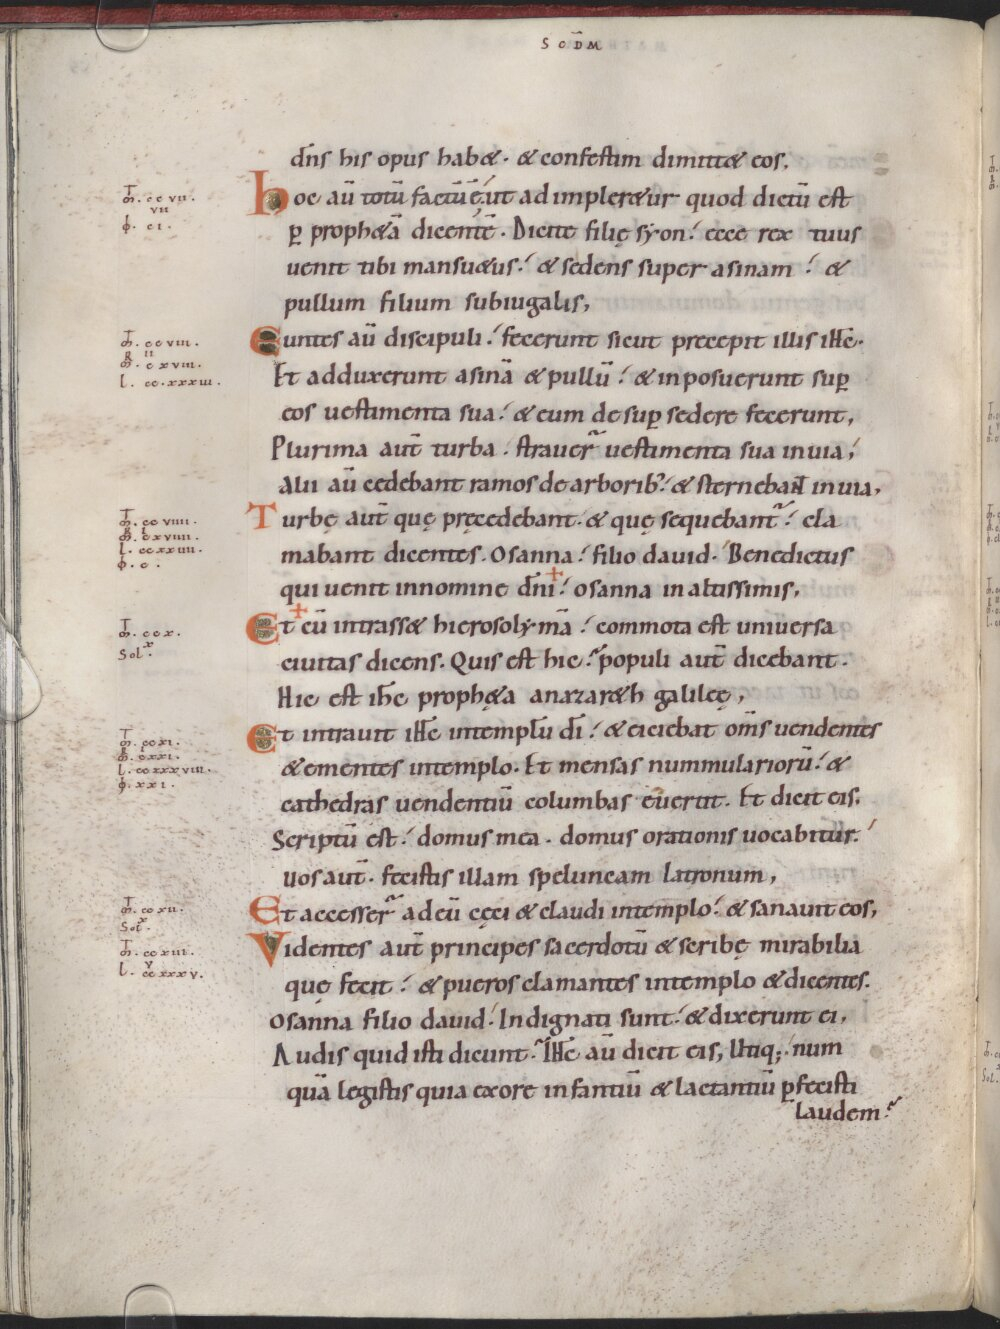 SCD̄M
dn̄s his opus habet. & confestim dimittet eos.
hoc aū totū factū ē, ut adimpleretur quod dictū est
ꝑ prophetā dicentē. Dicite filię syon. ecce rex tuus
uenit tibi mansuetus. & sedens super asinam. &
pullum filium subiugalis,
Euntes aū discipuli. fecerunt sicut precepit illis ih̄c.
Et adduxerunt asinā & pullū. & inposuerunt suꝑ
eos uestimenta sua. & eum desuꝑ sedere fecerunt,
Plurima aut̄ turba. strauer̄ uestimenta sua inuia,
Alii aū cedebant ramos de arborib; & sternebant inuia,
Turbę aut̄ quę pręcedebant. & quę sequebant̄. cla
mabant dicentes. Osanna. filio dauid. Benedictus
qui uenit innomine dn̄i. osanna in altissimis,
Et cū intrasset hierosolymā. commota est uniuersa
ciuitas dicens. Quis est hic. populi aut̄ dicebant.
Hic est ih̄c propheta anazareth galileę,
Et intrauit ih̄c intemplū dī. & eiciebat om̄s uendentes
& ementes intemplo. Et mensas nummulariorū. &
cathedras uendentiū columbas euertit. Et dicit eis.
Scriptū est. domus mea. domus orationis uocabitur.
uos aut̄. fecistis illam speluncam latronum,
Et accesser̄ ad eū cęci & claudi intemplo. & sanauit eos,
Videntes aut̄ principes sacerdotū & scribę mirabilia
quę fecit. & pueros clamantes intemplo & dicentes.
Osanna filio dauid. Indignati sunt. & dixerunt ei,
Audis quid isti dicunt. Ih̄c aū dicit eis, Utiq; num
quā legistis quia exore infantiū & lactantiū ꝑfecisti
laudem.
m̄. cc vii.
vii
ϕ. ci.
m̄. cc viii.
ii
m̄. cxviii.
l. cc.xxxiii.
m̄. cc viiii.
m̄. cxviiii.
l. ccxxxiiii.
ϕ. c.
m̄. ccx.
x
Sol.
m̄. ccxi.
m̄. cxxi.
l. ccxxxviii.
ϕ. xxi.
m̄. ccxii.
x
Sol.
m̄. ccxiii.
v
l. ccxxxv.